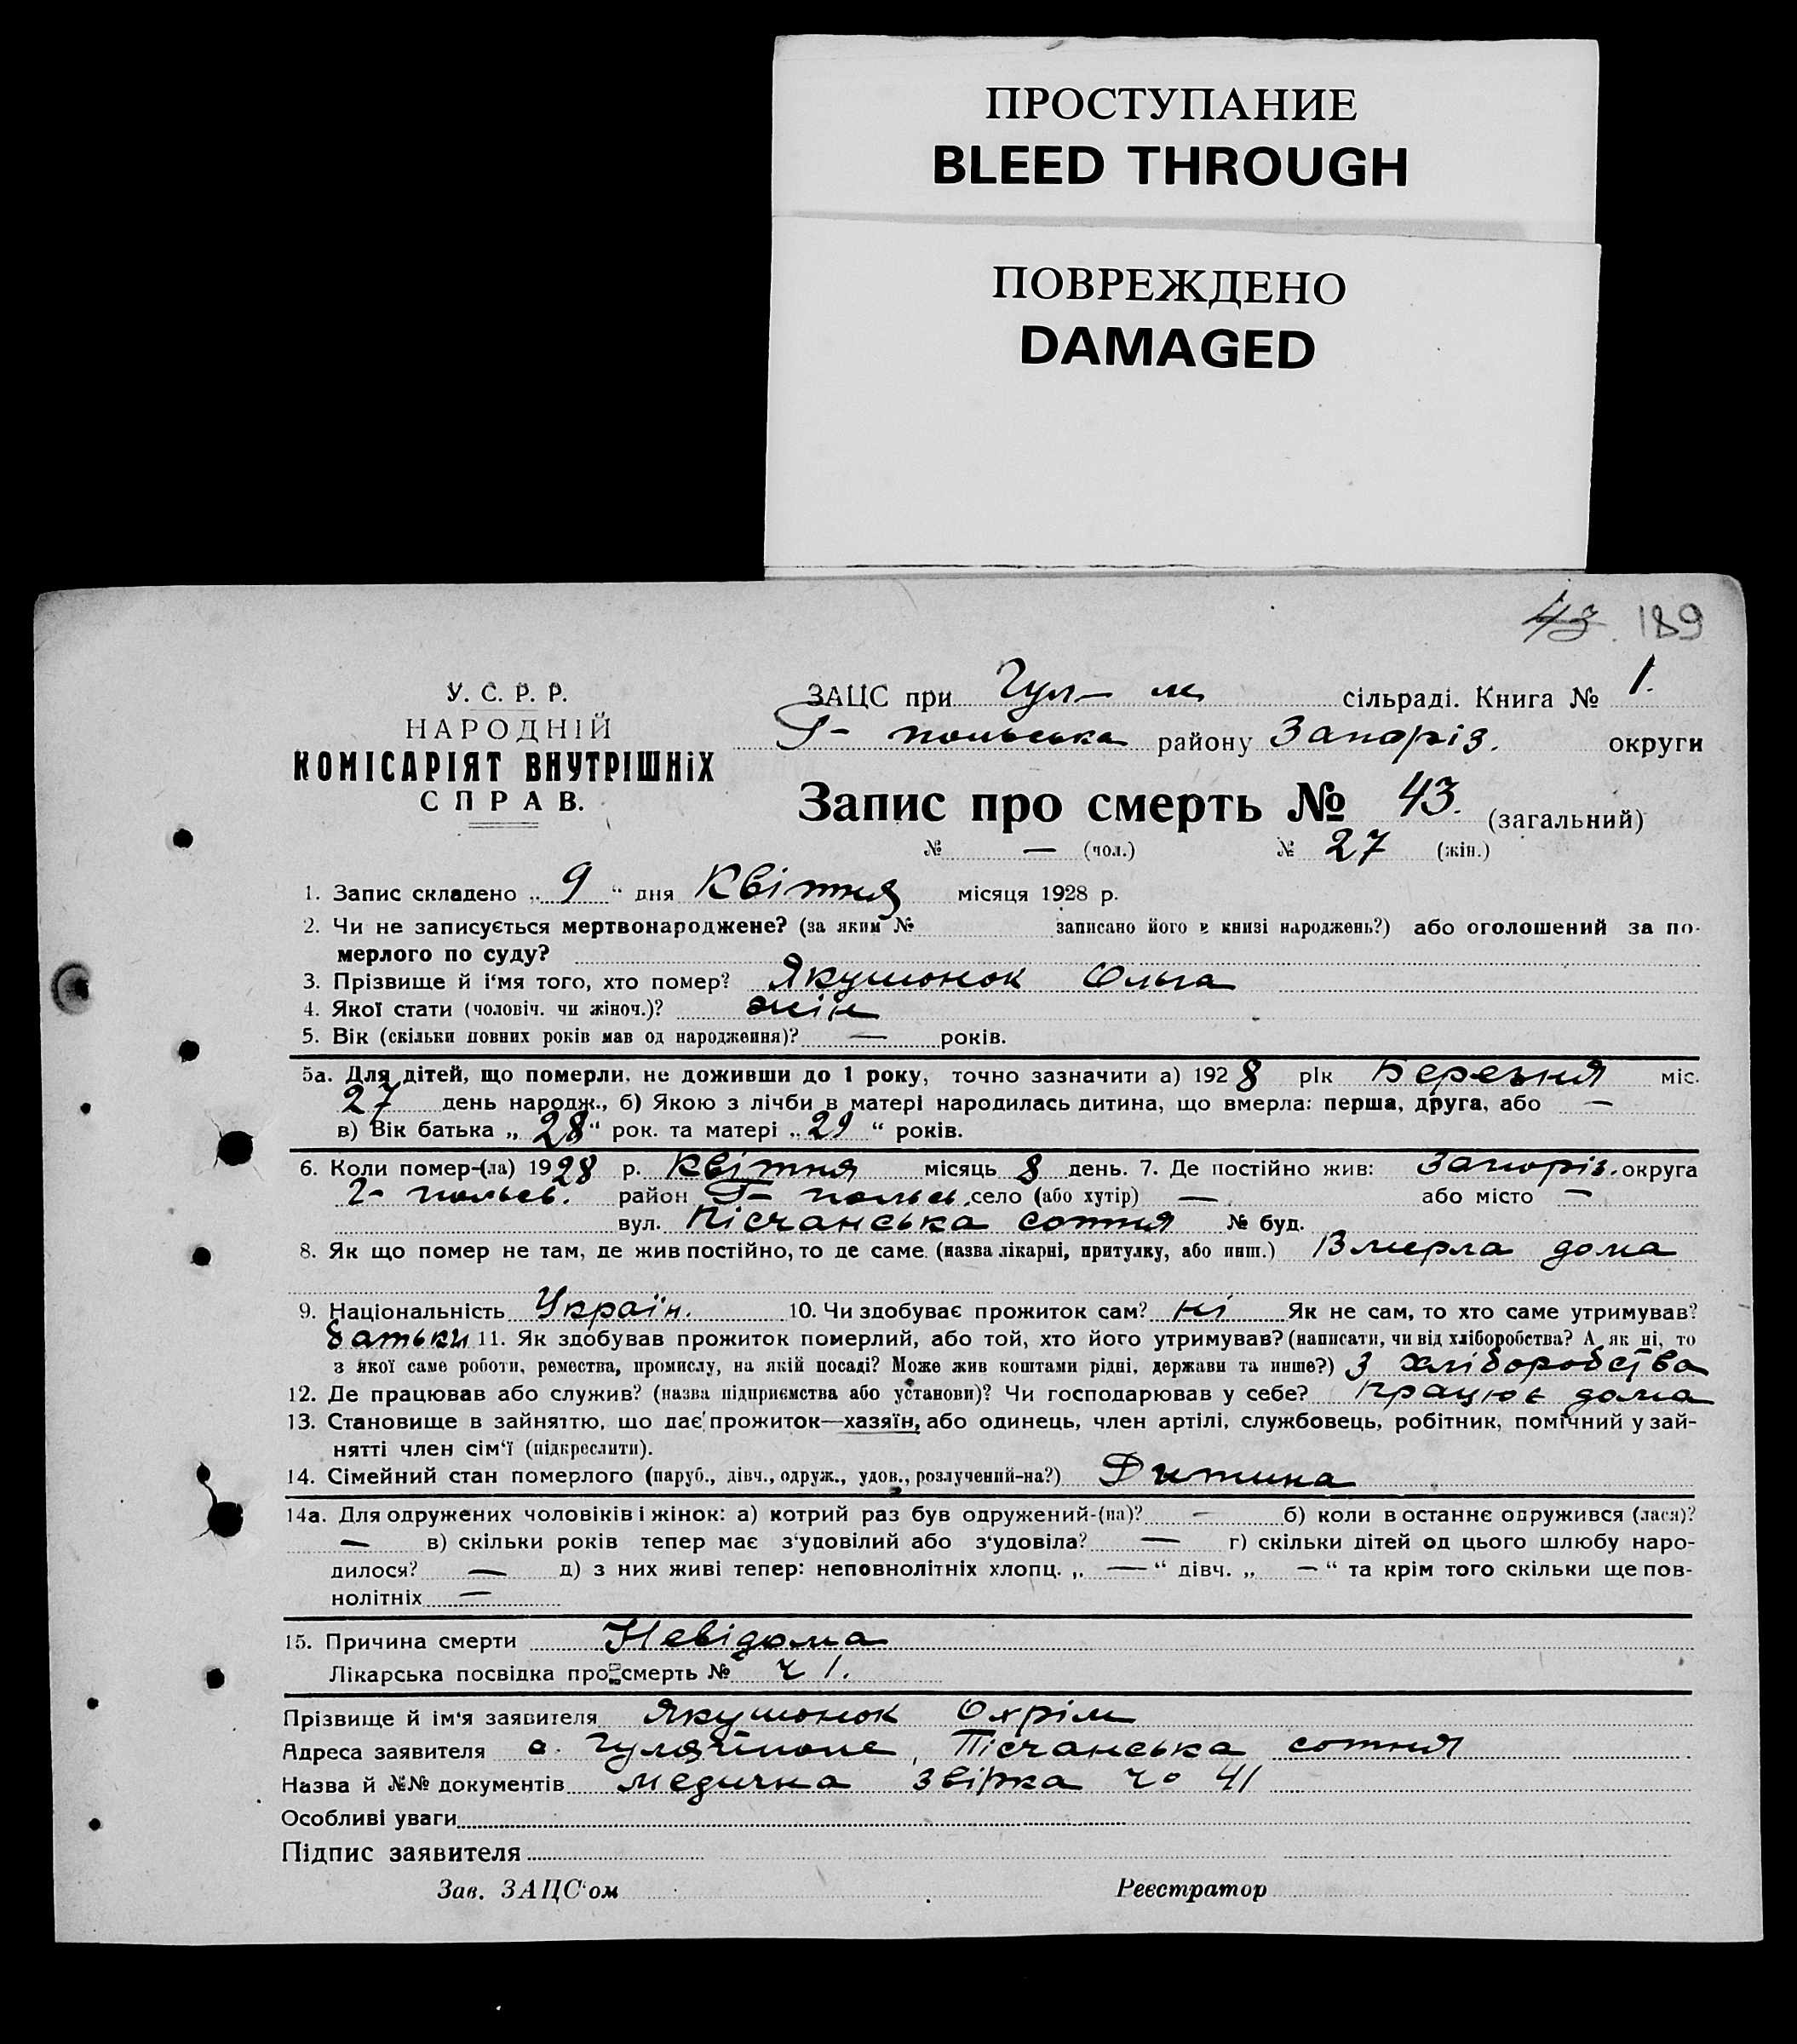 ПРОСТУПАНИЕ
BLEED THROUGH
ПОВРЕЖДЕНО
DAMAGED
43. 189
У. С. Р. Р.
НАРОДНІЙ
КОМІСАРІЯТ ВНУТРІШНІХ
СПРАВ.
ЗАЦС при Гул- м сільраді. Книга № 1.
Г- польська району Запоріз. округи
Запис про смерть № 43. (загальний)
№ — (чол.) № 27 (жін.)
1. Запис складено „ 9 “ дня Квітня місяця 1928 р.
2. Чи не записується мертвонароджене? (за яким № записано його в книзі народжень?) або оголошений за по-
мерлого по суду?
3. Прізвище й і'мя того, хто помер? Якушонок Ольга
4. Якої стати (чоловіч. чи жіноч.)? жін
5. Вік (скільки повних років мав од народження)? — років.
5а. Для дітей, що померли, не доживши до 1 року, точно зазначити а) 1928 рік Березня міс.
27 день народж., б) Якою з лічби в матері народилась дитина, що вмерла: перша, друга, або —
в) Вік батька „ 28 “ рок. та матері „ 29 “ років.
6. Коли помер-(ла) 1928 р. Квітня місяць 8 день. 7. Де постійно жив: Запоріз. округа
Г- польсь. район Г- польсь. село (або хутір) — або місто —
вул. Пісчанська сотня № буд.
8. Як що помер не там, де жив постійно, то де саме. (назва лікарні, притулку, або инш.) Вмерла дома
9. Національність Україн. 10. Чи здобуває прожиток сам? ні Як не сам, то хто саме утримував?
батьки 11. Як здобував прожиток померлий, або той, хто його утримував? (написати, чи від хліборобства? А як ні, то
з якої саме роботи, ремества, промислу, на якій посаді? Може жив коштами рідні, держави та инше?) З хліборобства
12. Де працював або служив? (назва підприємства або установи)? Чи господарював у себе? працює дома
13. Становище в зайняттю, що дає прожиток—хазяїн, або одинець, член артілі, службовець, робітник, помічний у зай-
нятті член сім'ї (підкреслити).
14. Сімейний стан померлого (паруб., дівч., одруж., удов., розлучений-на?) Дитина
14а. Для одружених чоловіків і жінок: а) котрий раз був одружений-(на)? — б) коли в останнє одружився (лася)?
— в) скільки років тепер має з'удовілий або з'удовіла? — г) скільки дітей од цього шлюбу наро-
дилося? — д) з них живі тепер: неповнолітніх хлопц. „ — “ дівч. „ — “ та крім того скільки ще пов-
нолітніх —
15. Причина смерти Невідома
Лікарська посвідка про смерть № 41.
Прізвище й ім'я заявителя Якушонок Охрім
Адреса заявителя с. Гуляйполе, Пісчанська сотня
Назва й №№ документів медична звірка 41
Особливі уваги
Підпис заявителя
Зав. ЗАЦС'ом Реєстратор